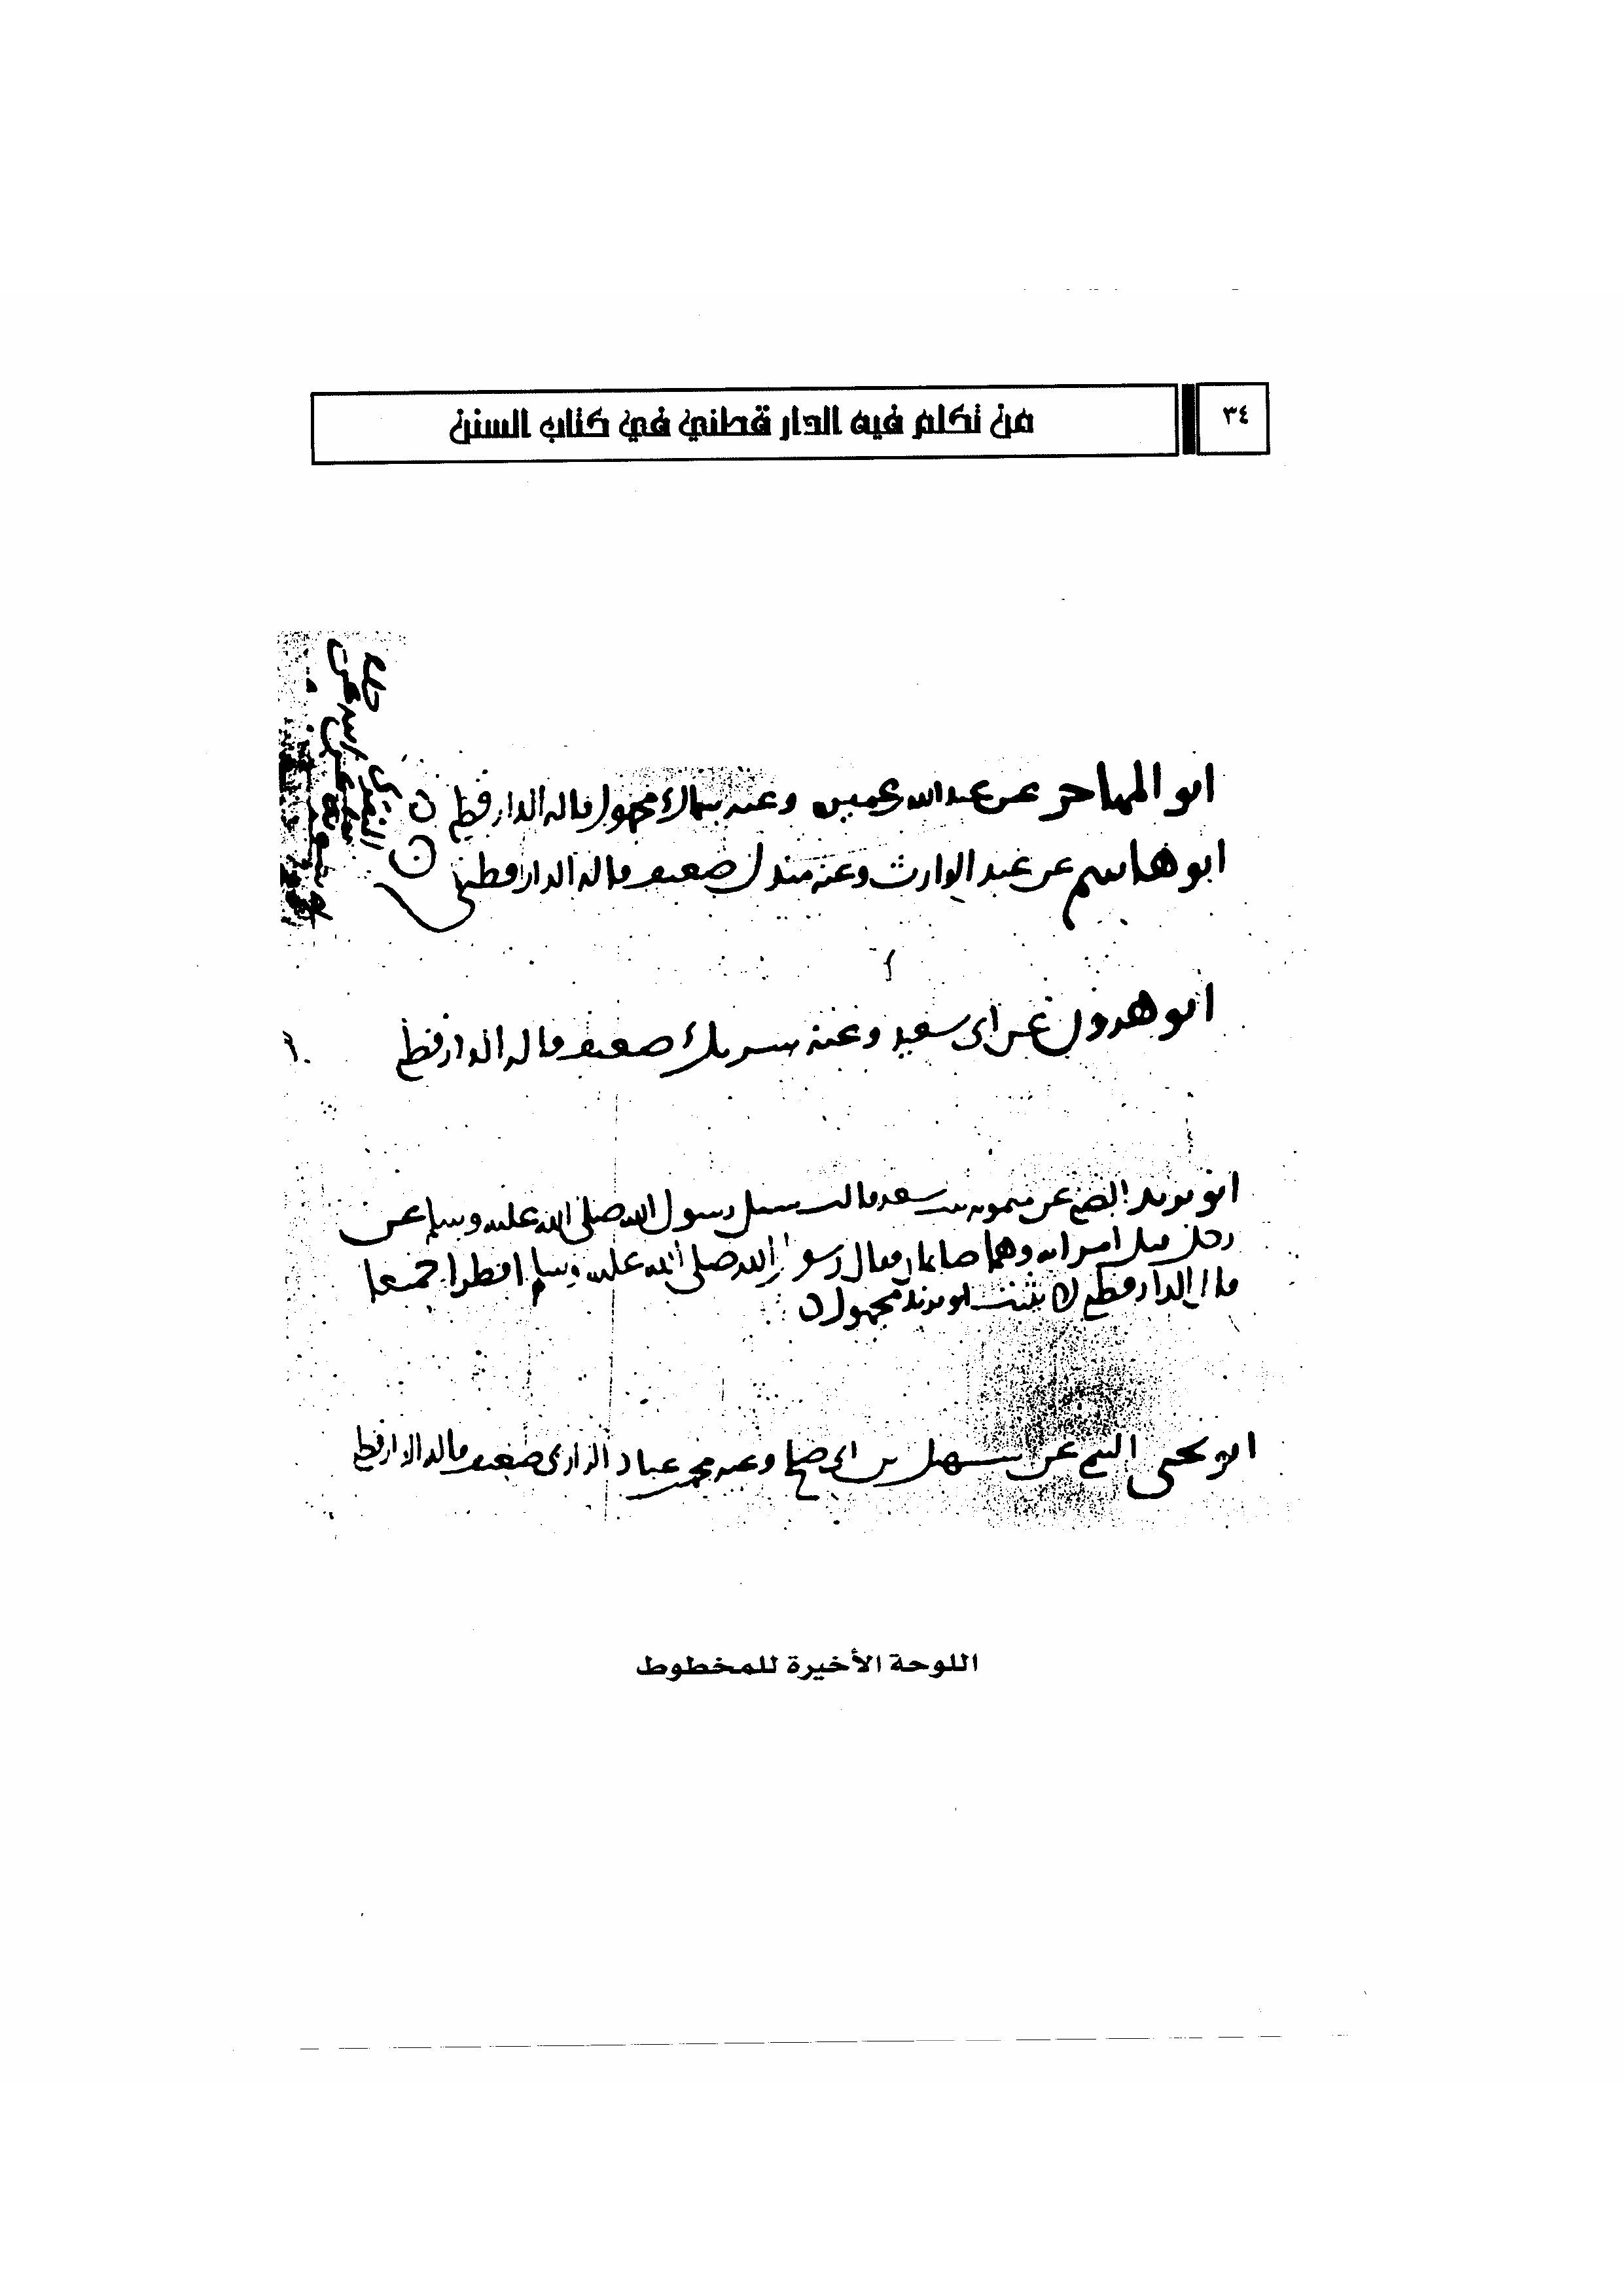 ٣٤
من تكلم فيه الدار قطني في كتاب السنن
ابو المهاجر عن عبد الله عميره وعنه سماك مجهول قاله الدارقطني
ابو هاشم عن عبد الوارث وعنه مندل ضعيف قاله الدارقطني
ابو هرون عن ابى سعيد وعنه شريك ضعيف قاله الدارقطني
ابو يزيد الضبي عن ميمونه بنت سعد قالت سئل رسول الله صلى الله عليه وسلم عن
رجل قبل امراته وهما صائمان فقال رسول الله صلى الله عليه وسلم افطرا جميعا
قال الدارقطني لا يثبت ابو يزيد مجهول
ابو يحيى التيمي عن سهيل بن ابى صالح وعنه محمد عباد الرازى ضعيف قاله الدارقطني
اللوحة الأخيرة للمخطوط